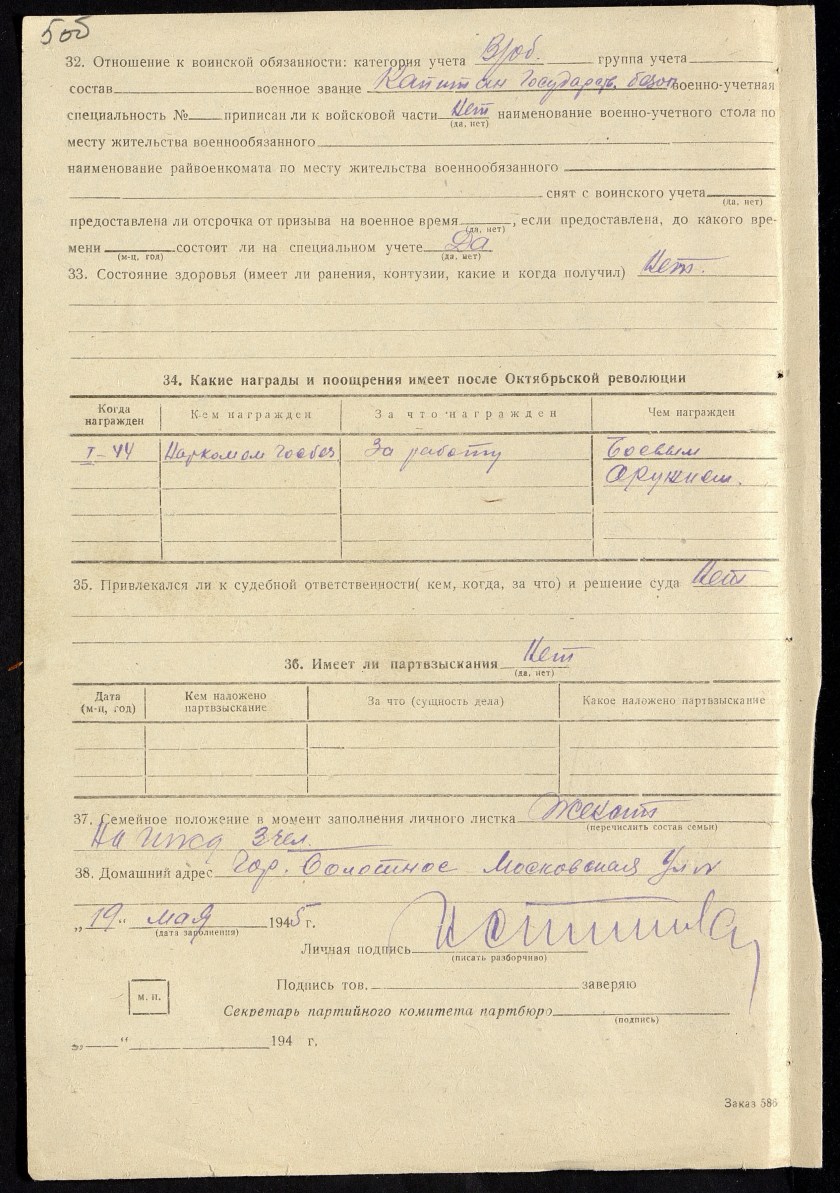 505
32. Отношение к воинской обязанности: категория учета В/об. группа учета
состав военное звание Капитан Государств. безоп военно-учетная
специальность № приписан ли к войсковой части Нет наименование военно-учетного стола по
(да, нет)
месту жительства военнообязанного
наименование райвоенкомата по месту жительства военнообязанного
снят с воинского учета
(да, нет)
предоставлена ли отсрочка от призыва на военное время , если предоставлена, до какого вре-
(да, нет)
мени состоит ли на специальном учете Да
(м-ц, год) (да, нет)
33. Состояние здоровья (имеет ли ранения, контузии, какие и когда получил) Нет.
34. Какие награды и поощрения имеет после Октябрьской революции
Когда награжден Кем награжден За что награжден Чем награжден
I-44 Наркомом госбез За работу Боевым
Оружием.
35. Привлекался ли к судебной ответственности( кем, когда, за что) и решение суда Нет
36. Имеет ли партвзыскания Нет
(да, нет)
Дата (м-ц, год) Кем наложено партвзыскание За что (сущность дела) Какое наложено партвзыскание
37. Семейное положение в момент заполнения личного листка Женат
(перечислить состав семьи)
На ижд 3 чел.
38. Домашний адрес Гор. Болотное Московская Ул
„19“ мая 1945 г.
(дата заполнения)
Личная подпись
(писать разборчиво)
Подпись тов. заверяю
м. п.
Секретарь партийного комитета партбюро
(подпись)
„ “ 194 г.
Заказ 586